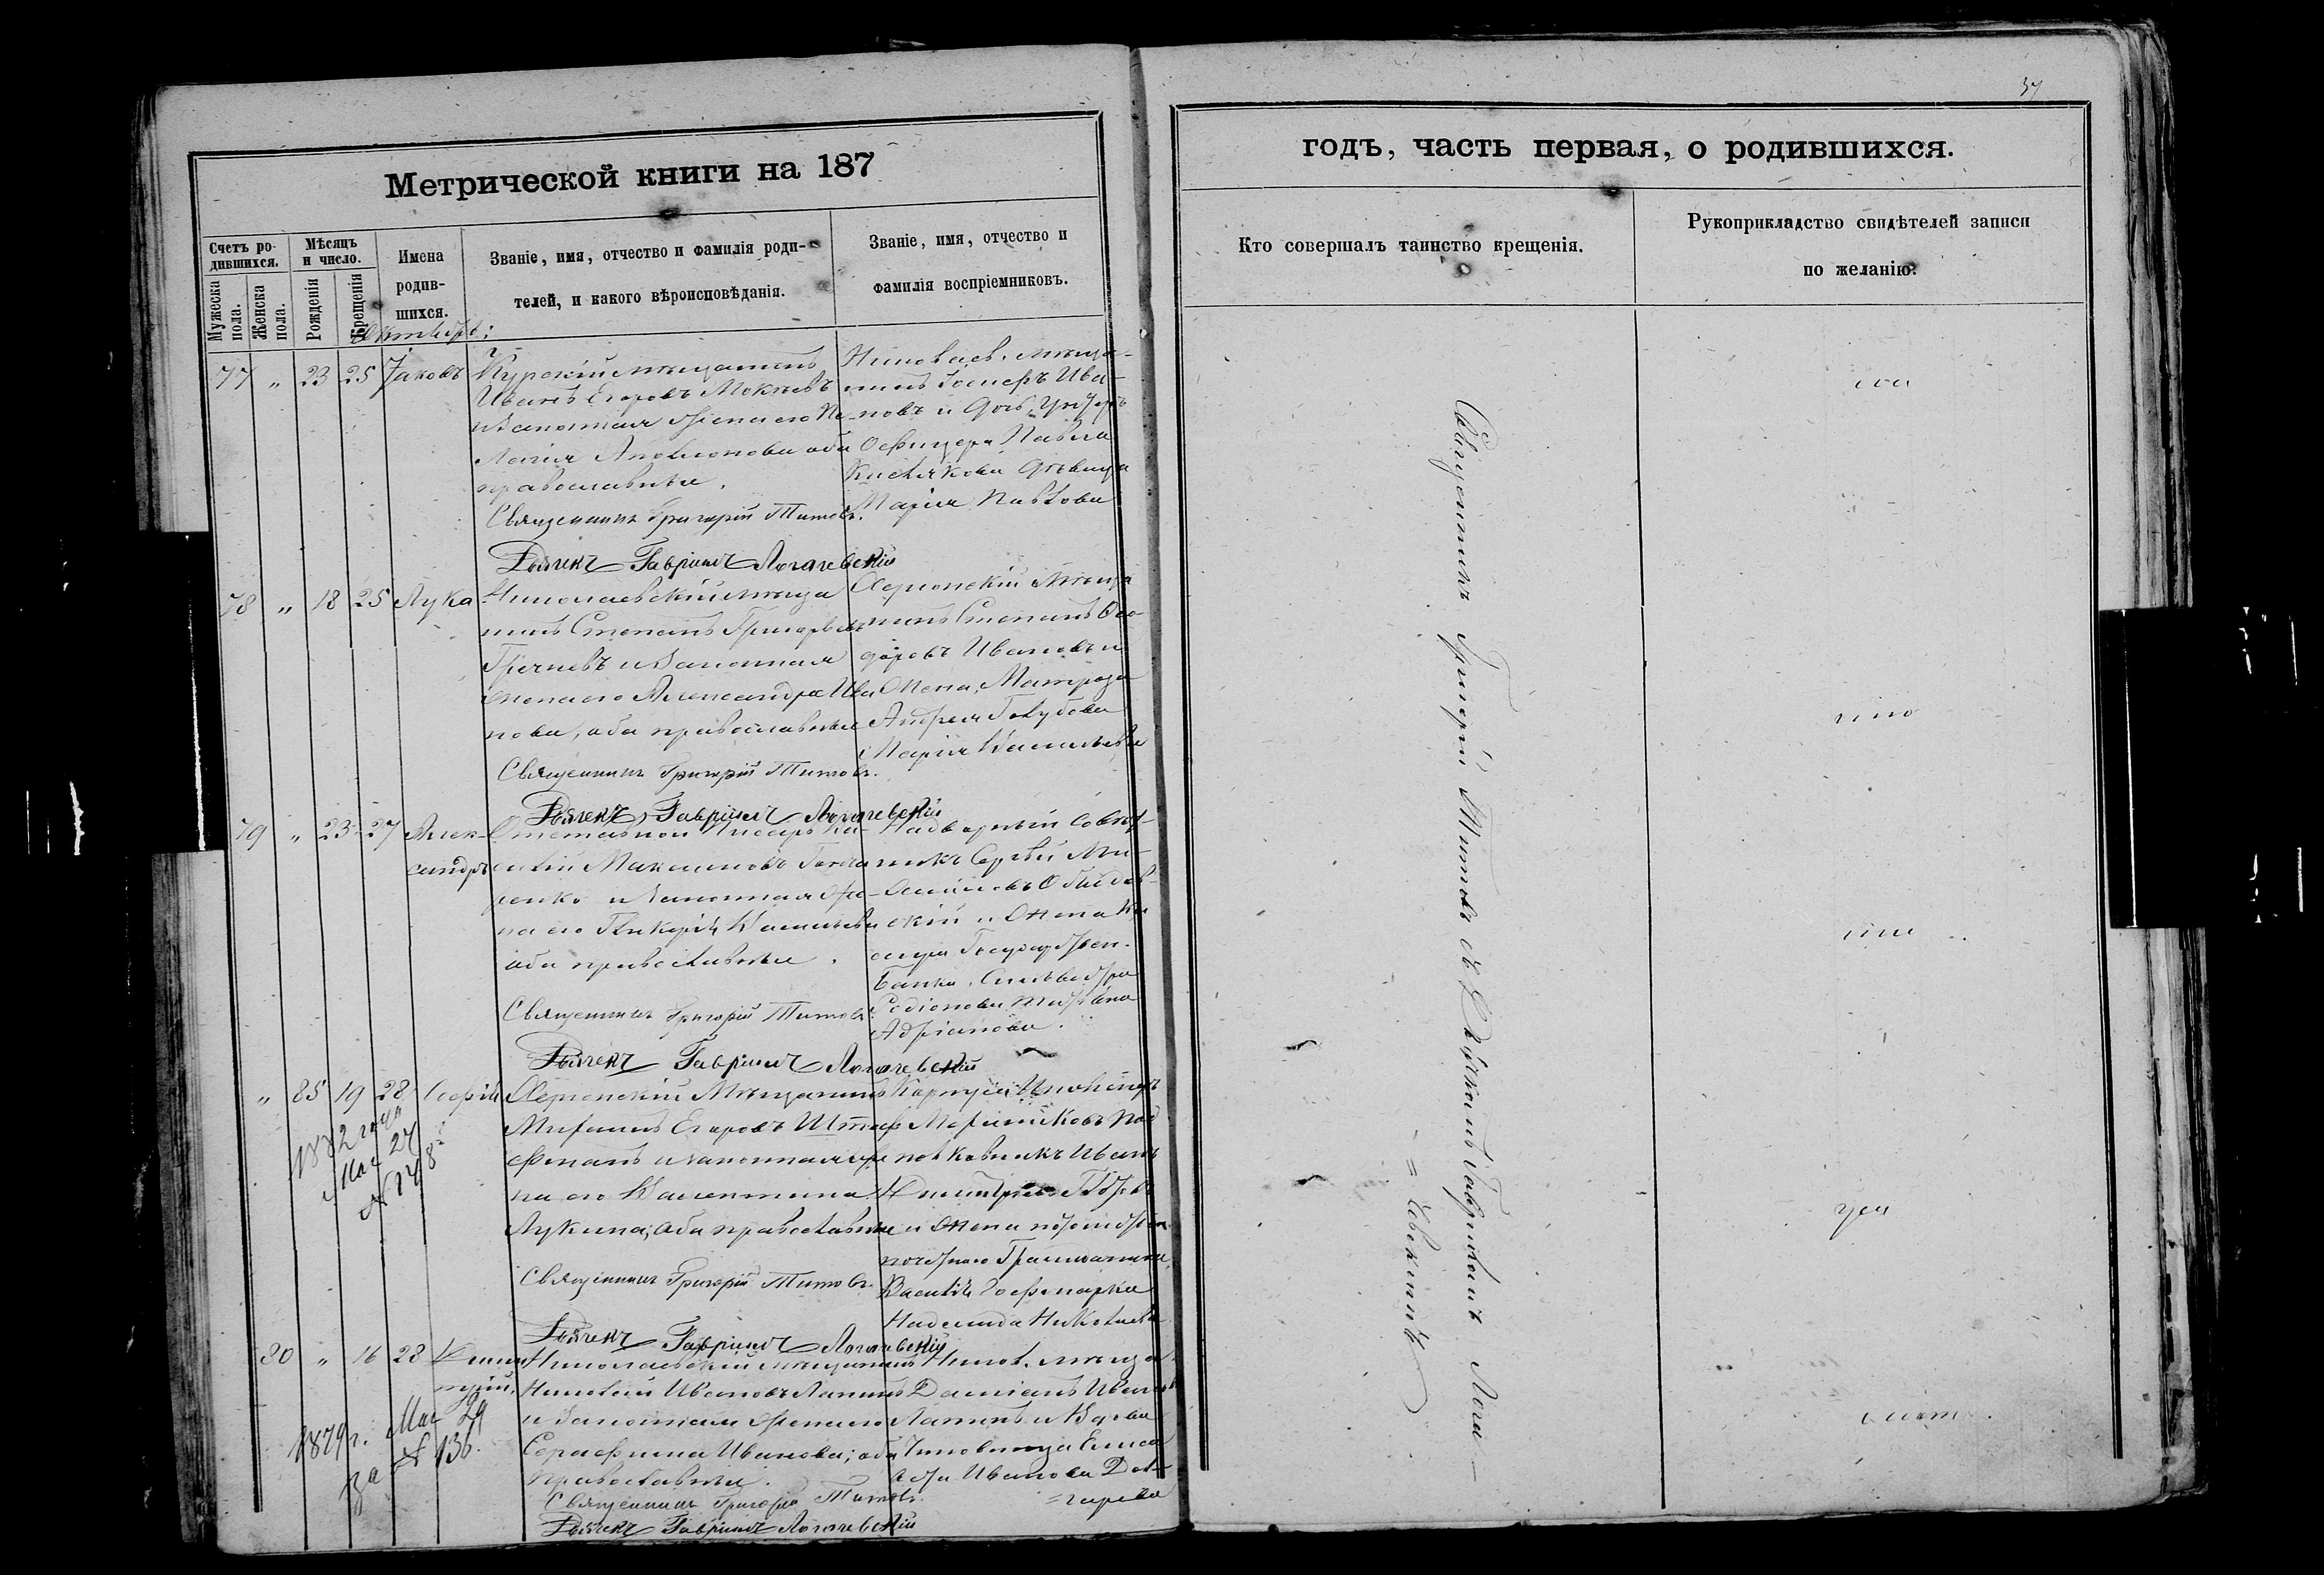 Метрической книги на 187
Счетъ ро-
дившихся.
Мужеска пола.
Женска пола.
Мѣсяцъ
и число.
Рожденія
Крещенія
Имена
родив-
шихся.
Званіе, имя, отчество и фамилія роди-
телей, и какого вѣроисповѣданія.
Званіе, имя, отчество и
фамилія воспріемниковъ.
Октябрь:
77 " 23 25 Іаковъ
Курскій мѣщанинъ
Иванъ Егоровъ
и законная жена его Пе-
лагія оба
православные.
Священникъ Григорій Титовъ.
Діаконъ Гавріилъ Логачевскій
Николаев. мѣща-
нинъ Іосифъ Ива-
новъ и дочь Унтеръ
Офицера Павла
Кислякова дѣвица
Марія Павлова
78 " 18 25 Лука
Николаевскій мѣща
нинъ Степанъ Григорьевъ
и законная
жена его Александра Ива
нова, оба православные
Священникъ Григорій Титовъ.
Діаконъ Гавріилъ Логачевскій
Херсонскій Мѣща
нинъ Степанъ Ѳео-
доровъ Ивановъ и
жена Матроза
Андрея Голубова
Марія Васильева
79 " 23 27 Алек-
сандръ
Отставной Писарь Ва-
силій Максимовъ Гонча
ренко и законная же-
на его Гликерія Васильева
оба православные.
Священникъ Григорій Титовъ
Діаконъ Гавріилъ Логачевскій
Надворный Совѣт-
никъ Сергѣй
скій и жена Ка
ссира Государствен.
Банка Сильвестра
Родіонова Татіана
Адріанова.
" 85 19 28 Софія
1882 года
Мая 27
Херсонскій Мѣщанинъ
Егоровъ
и законная же
на его Валентина
Лукина; оба православные
Священникъ Григорій Титовъ
Діаконъ Гавріилъ Логачевскій
Корпуса Инженеръ
Механиковъ Под
полковникъ Иванъ
Димитріевъ
и жена потомствен.
почетнаго Гражданина
Василія Гофмарка
Надежда Николаева
80 " 16 28 Дими
трій.
1879 г. Мая 29
за № 136.
Николаевскій мѣщанинъ
Николай Ивановъ Лапинъ
и законная жена его
Серафима Ивановa; оба
православные.
Священникъ Григорій Титовъ.
Діаконъ Гавріилъ Логачевскій
Никол. мѣща
Даміанъ Ивановъ
Лапинъ и Вдова
Чиновница Елиса
вета Иванова
годъ, часть первая, о родившихся.
Кто совершалъ таинство крещенія.
Рукоприкладство свидѣтелей записи
по желанію.
Священникъ Григорій Титовъ съ Діакономъ Гавріиломъ Лога-
=чевскимъ